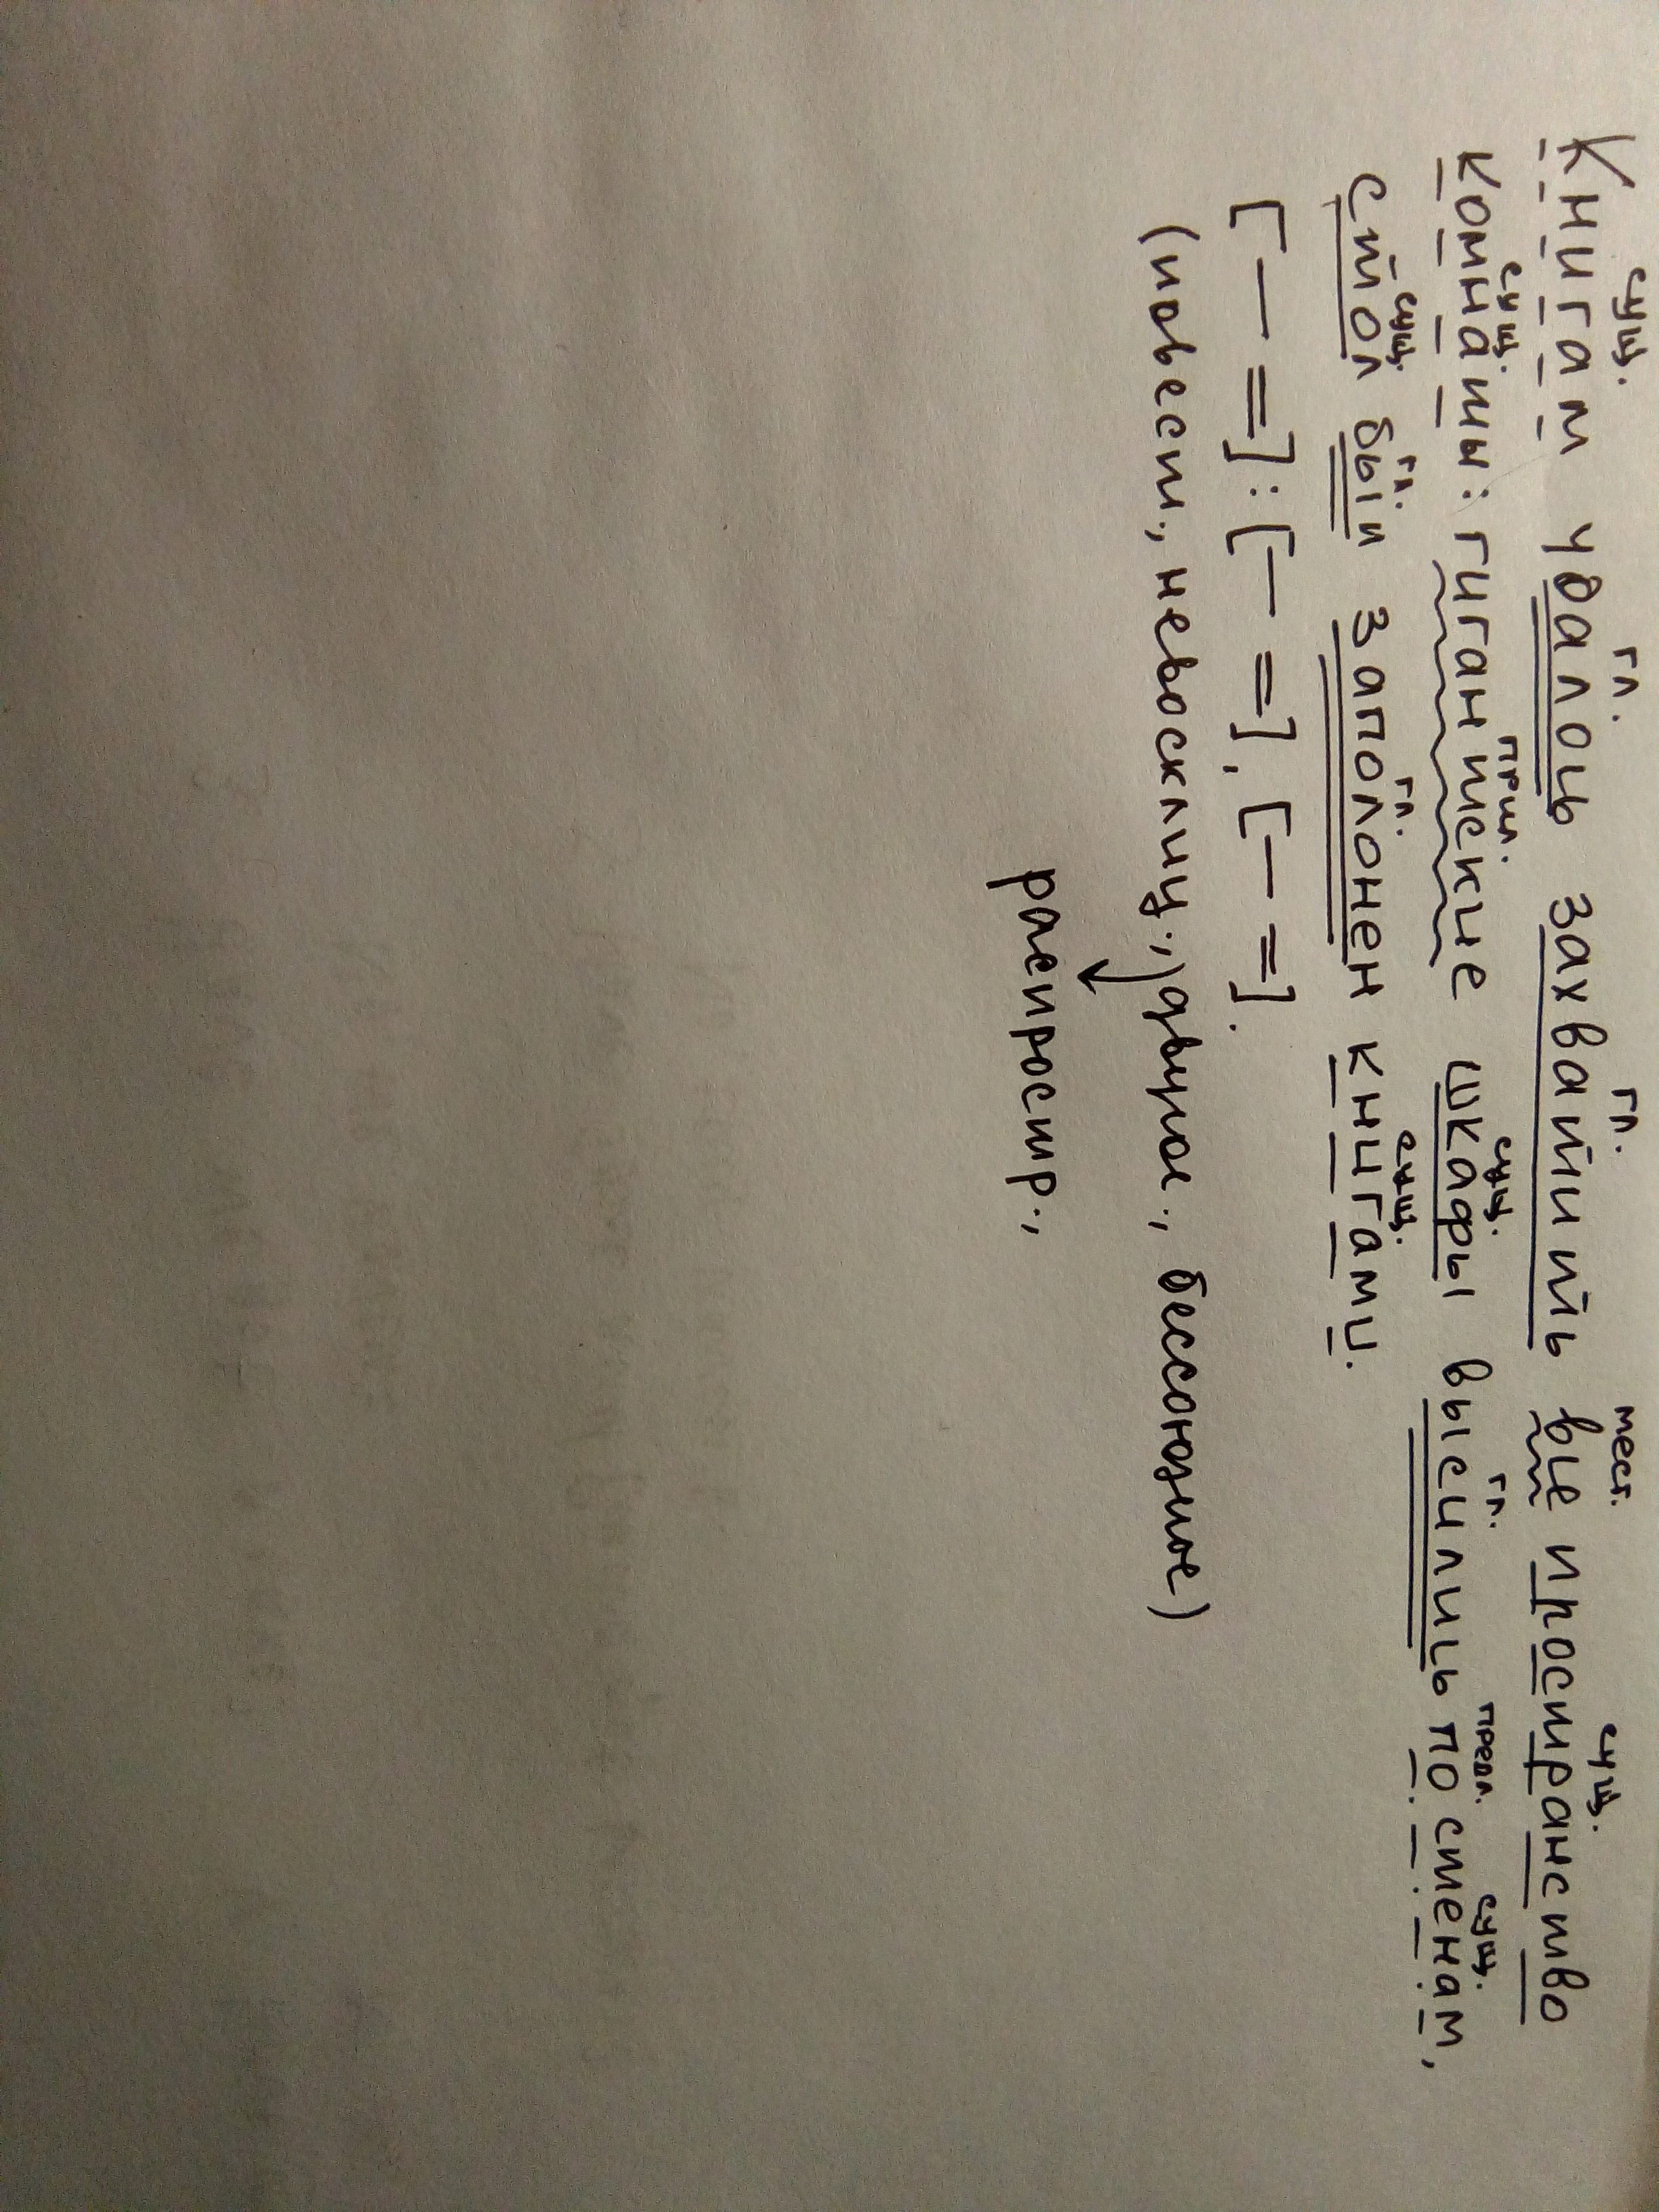 сущ. гл. гл. мест. сущ.
Книгам удалось захватить все пространство
сущ. прил. сущ. гл. предл. сущ.
комнаты: гигантские шкафы высились по стенам,
сущ. гл. гл. сущ.
стол был заполонен книгами.
[— =]: [— =], [— =].
(повест., невосклиц., двусос., бессоюзное)
распростр.,